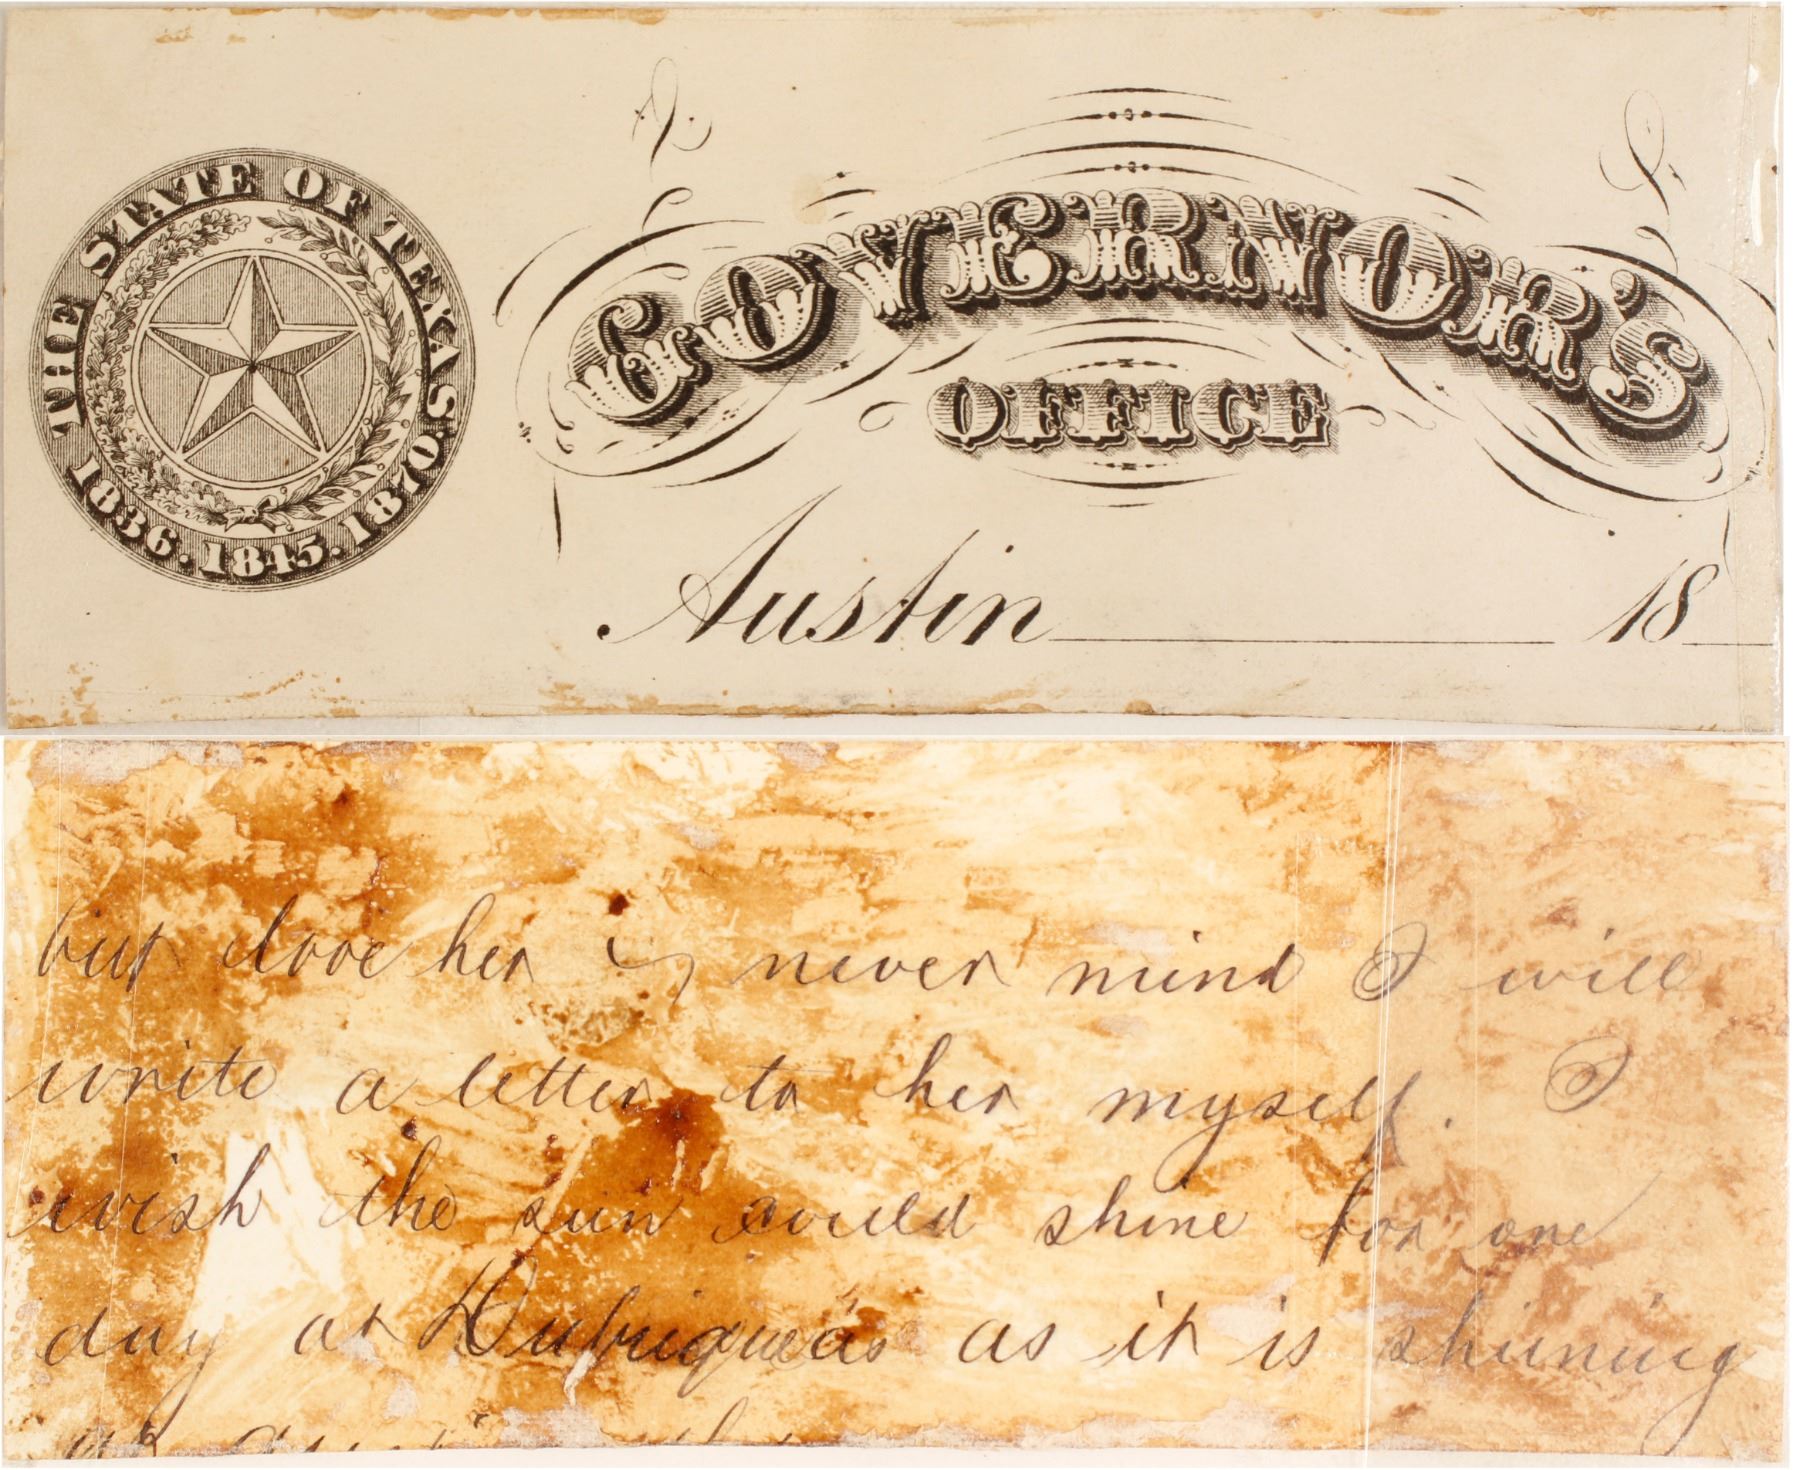 THE STATE OF TEXAS
1836. 1845. 1870.
GOVERNOR'S
OFFICE
Austin 18
but love her never mind I will
write a letter to her myself. I
wish the sun would shine for one
day at as it is shining